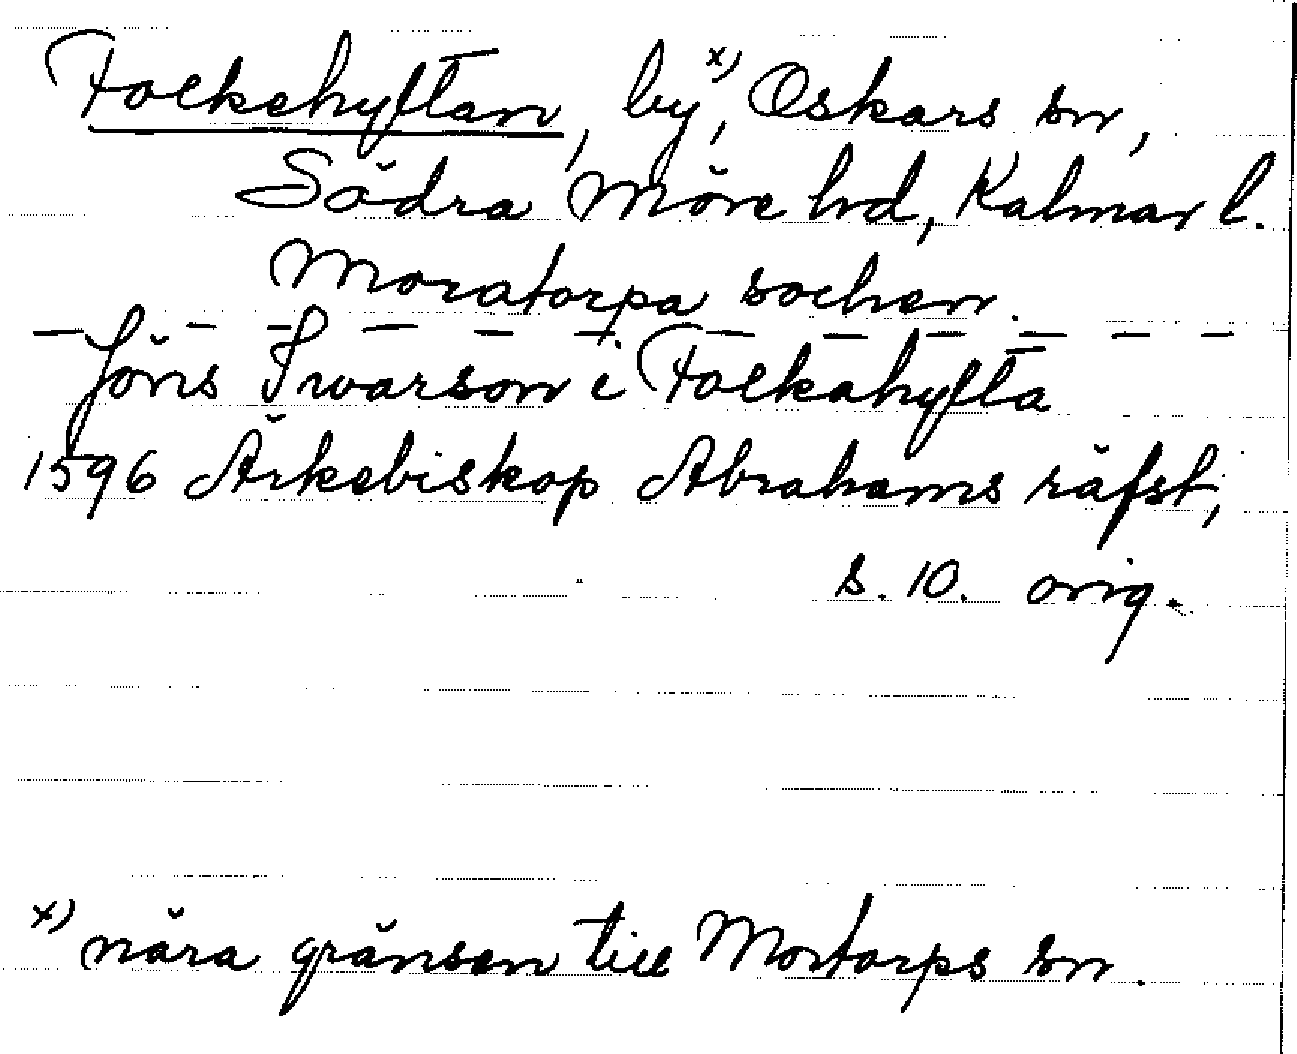 Folkehyltan, by x), Oskars sn,
Södra Möre hd, Kalmar l.
Moratorpa sochen.
— — — — — — — — — — — —
Jöns Swarson i Folkahylta
1596 Ärkebiskop Abrahams räfst,
s. 10. orig.
x) nära gränsen till Mortorps sn.